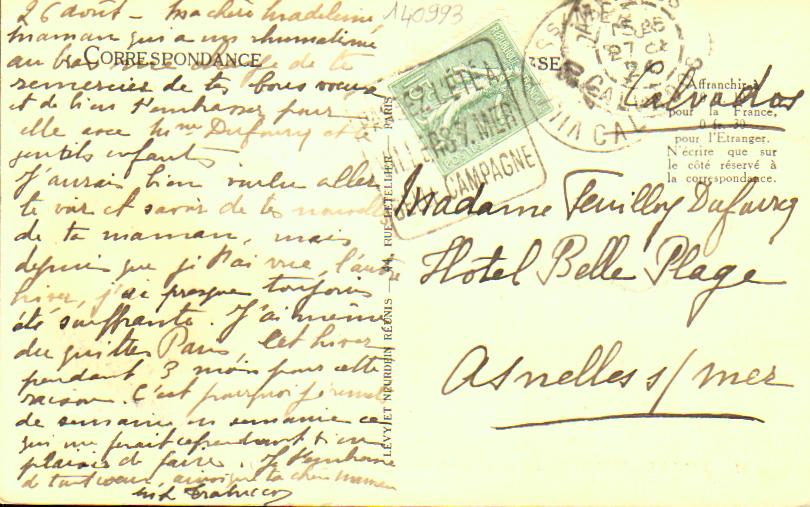 26 août - Ma chère Madeleine
maman qui a un rhumatisme
au bras me charge de te
remercier de tes bons vœux
et de bien t'embrasser pour
elle avec Mme Dufourcq et les
gentils enfants.
J'aurais bien voulu aller
te voir et savoir de tes nouvelles
de ta maman, mais
depuis que je t'ai vue, l'autre
hiver, j'ai presque toujours
été souffrante. J'ai même
du quitter Paris cet hiver
pendant 3 mois pour cette
raison. C'est pourquoi je remets
de semaine en semaine ce
qui me ferait cependant si
plaisir de faire. Je t'embrasse
de tout cœur, ainsi que ta chère maman
140993
CORRESPONDANCE
LÉVY ET NEURDEIN RÉUNIS — 44, RUE LETELLIER — PARIS
L'ÉTÉ A
S/MER
CAMPAGNE
Affranchir à
pour la France,
0 fr. 30
pour l'Etranger.
N'écrire que sur
le côté réservé à
la correspondance.
Calvados
Madame Feuilloy Dufourcq
Hotel Belle Plage
Asnelles s/mer